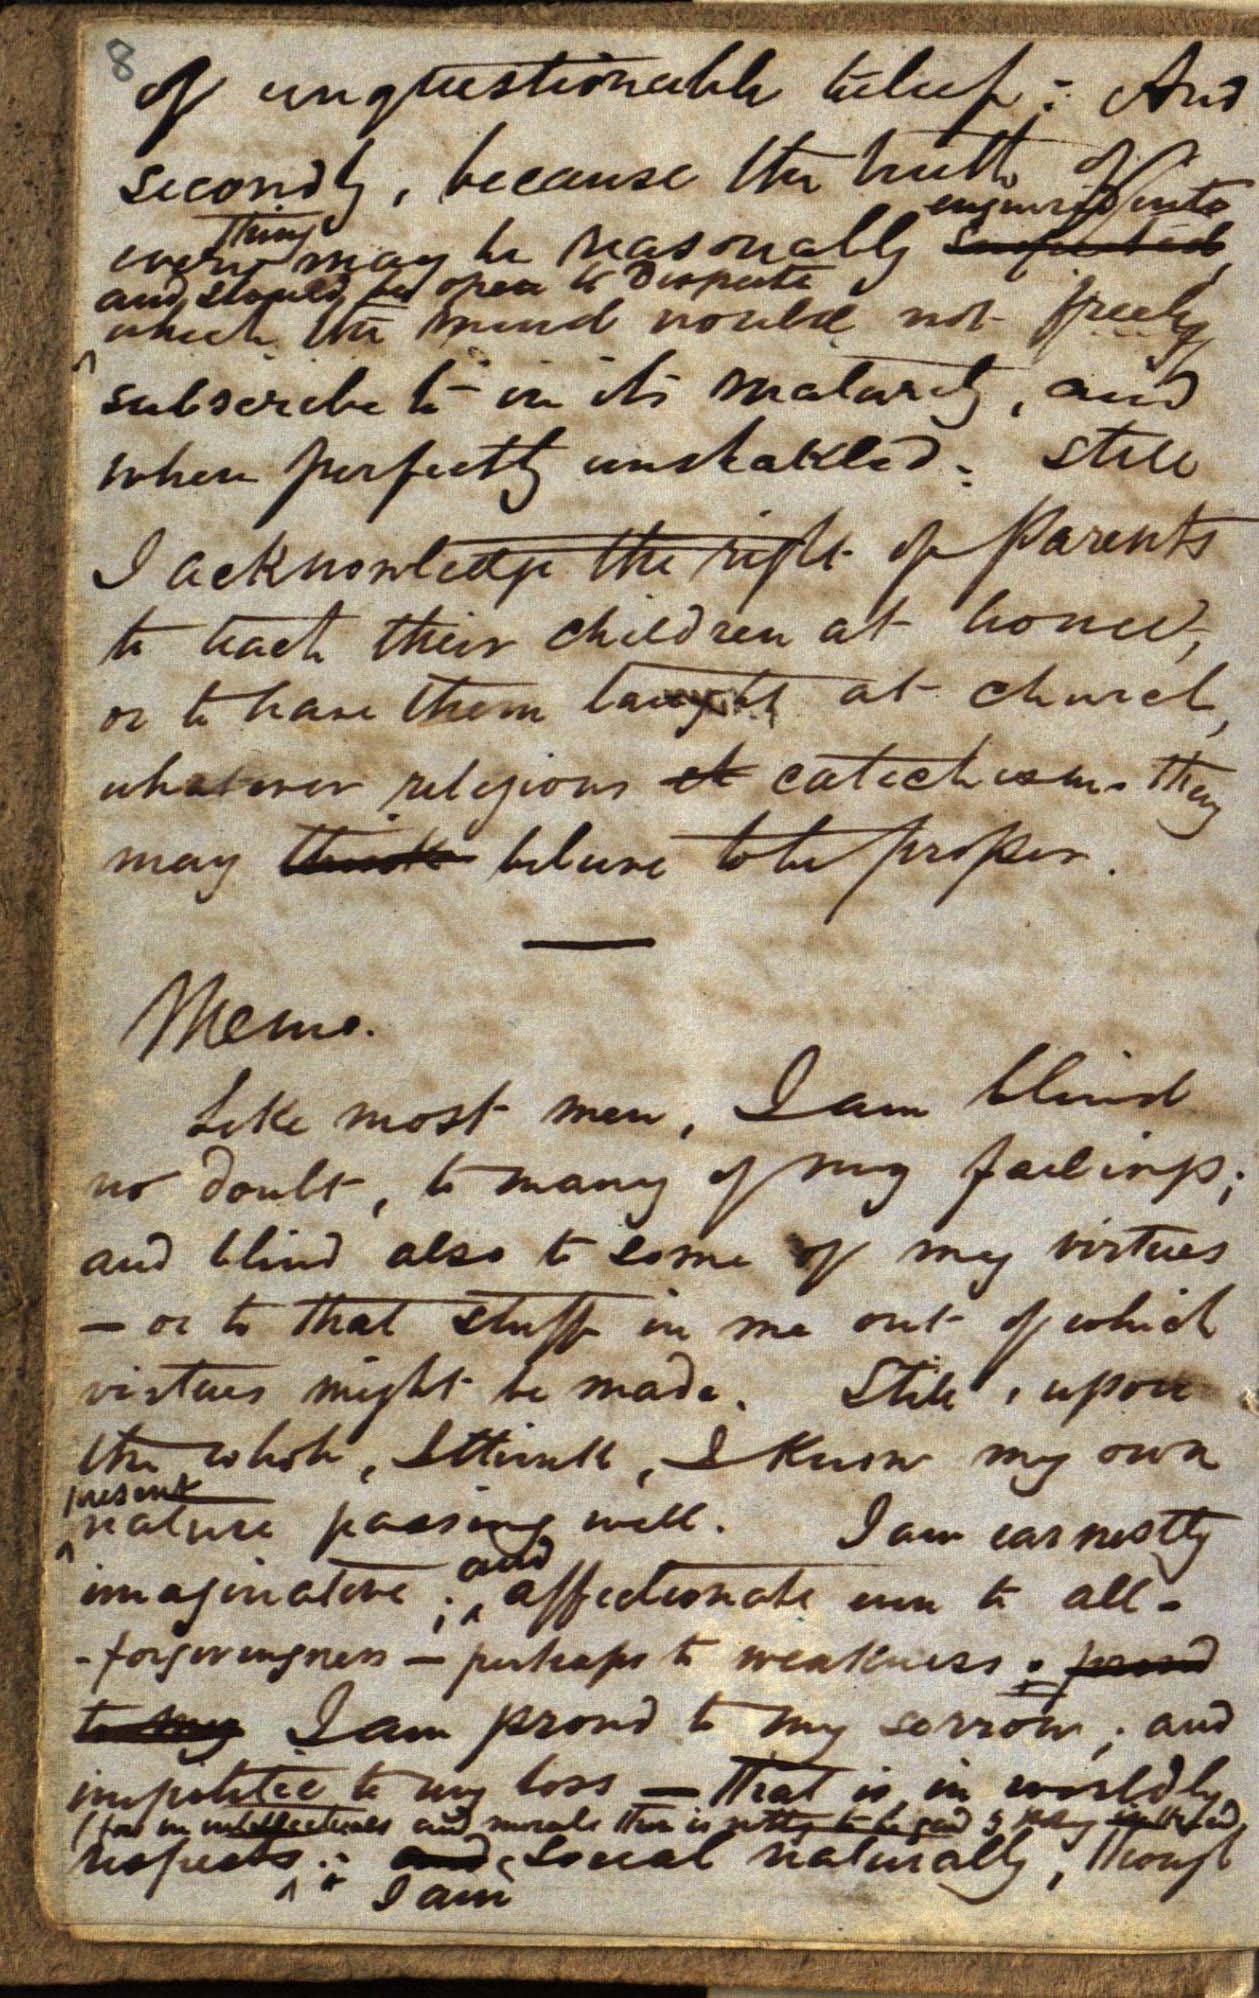 8
of unquestionable belief: And
secondly, because the truth of
engui into
thing
every may be reasonably suspected,
and should be open to Dispute
which the mind would not freely
subscribe to in its maturity, and
when perfectly unshakled. Still
I acknowledge the right of Parents
to teach their children at home,
or to have them taught at church,
whatever religious ch catechism they
may think believe to be proper.
Memo.
Like most men, I am blind
no doubt, to many of my failings;
and blind also to some of my virtues
— or to that stuff in me out of which
virtues might be made. Still, upon
the whole, I think, I know my own
present
nature passing well. I am earnestly
and
imaginative; affectionate even to all-
-forgivingness — perhaps to weakness: proud
to my I am proud to my sorrow; and
impolitic to my loss — that is in worldly
(for in intellectuals and morals there is nothing to be
respects: and social naturally, though
I am